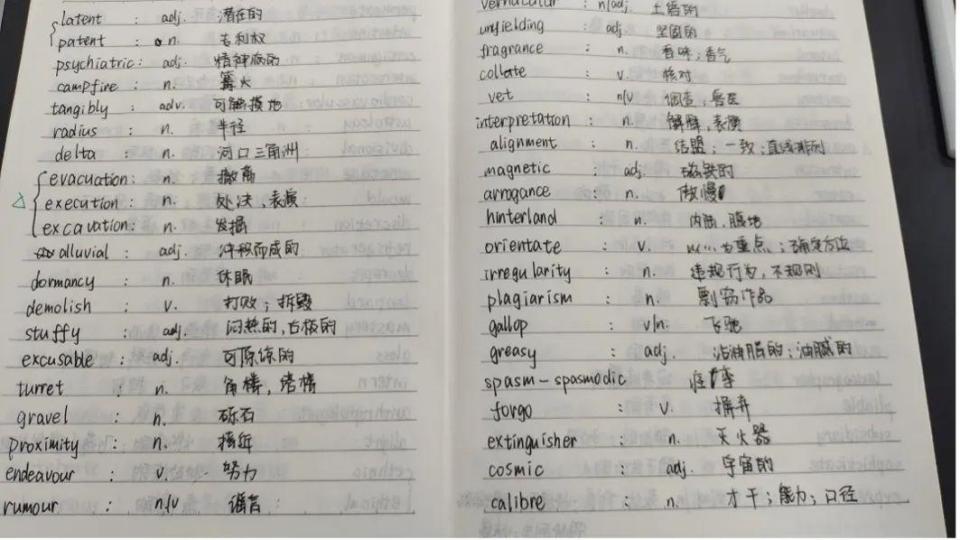 latent : adj. 潜在的
patent : n. 专利权
psychiatric : adj. 精神病的
campfire : n. 篝火
tangibly : adv. 可触摸地
radius : n. 半径
delta : n. 河口三角洲
evacuation : n. 撤离
execution : n. 处决,表演
excavation : n. 发掘
alluvial : adj. 冲积而成的
dormancy : n. 休眠
demolish : v. 打败;拆毁
stuffy : adj. 闷热的,古板的
excusable : adj. 可原谅的
turret : n. 角楼,塔楼
gravel : n. 砾石
proximity : n. 接近
endeavour : v. 努力
rumour : n/v 谣言
vernacular : n/adj. 土语的
unyielding : adj. 坚固的
fragrance : n. 香味;香气
collate : v. 核对
vet : n/v 调查;兽医
interpretation : n. 解释,表演
alignment : n. 结盟;一致;直线排列
magnetic : adj. 磁铁的
arrogance : n. 傲慢
hinterland : n. 内陆,腹地
orientate : v. 以…为重点;确定方位
irregularity : n. 违规行为,不规则
plagiarism : n. 剽窃作品
gallop : v/n. 飞驰
greasy : adj. 沾油脂的;油腻的
spasm-spasmodic 痉挛
forgo : v. 摒弃
extinguisher : n. 灭火器
cosmic : adj. 宇宙的
calibre : n. 才干;能力;口径